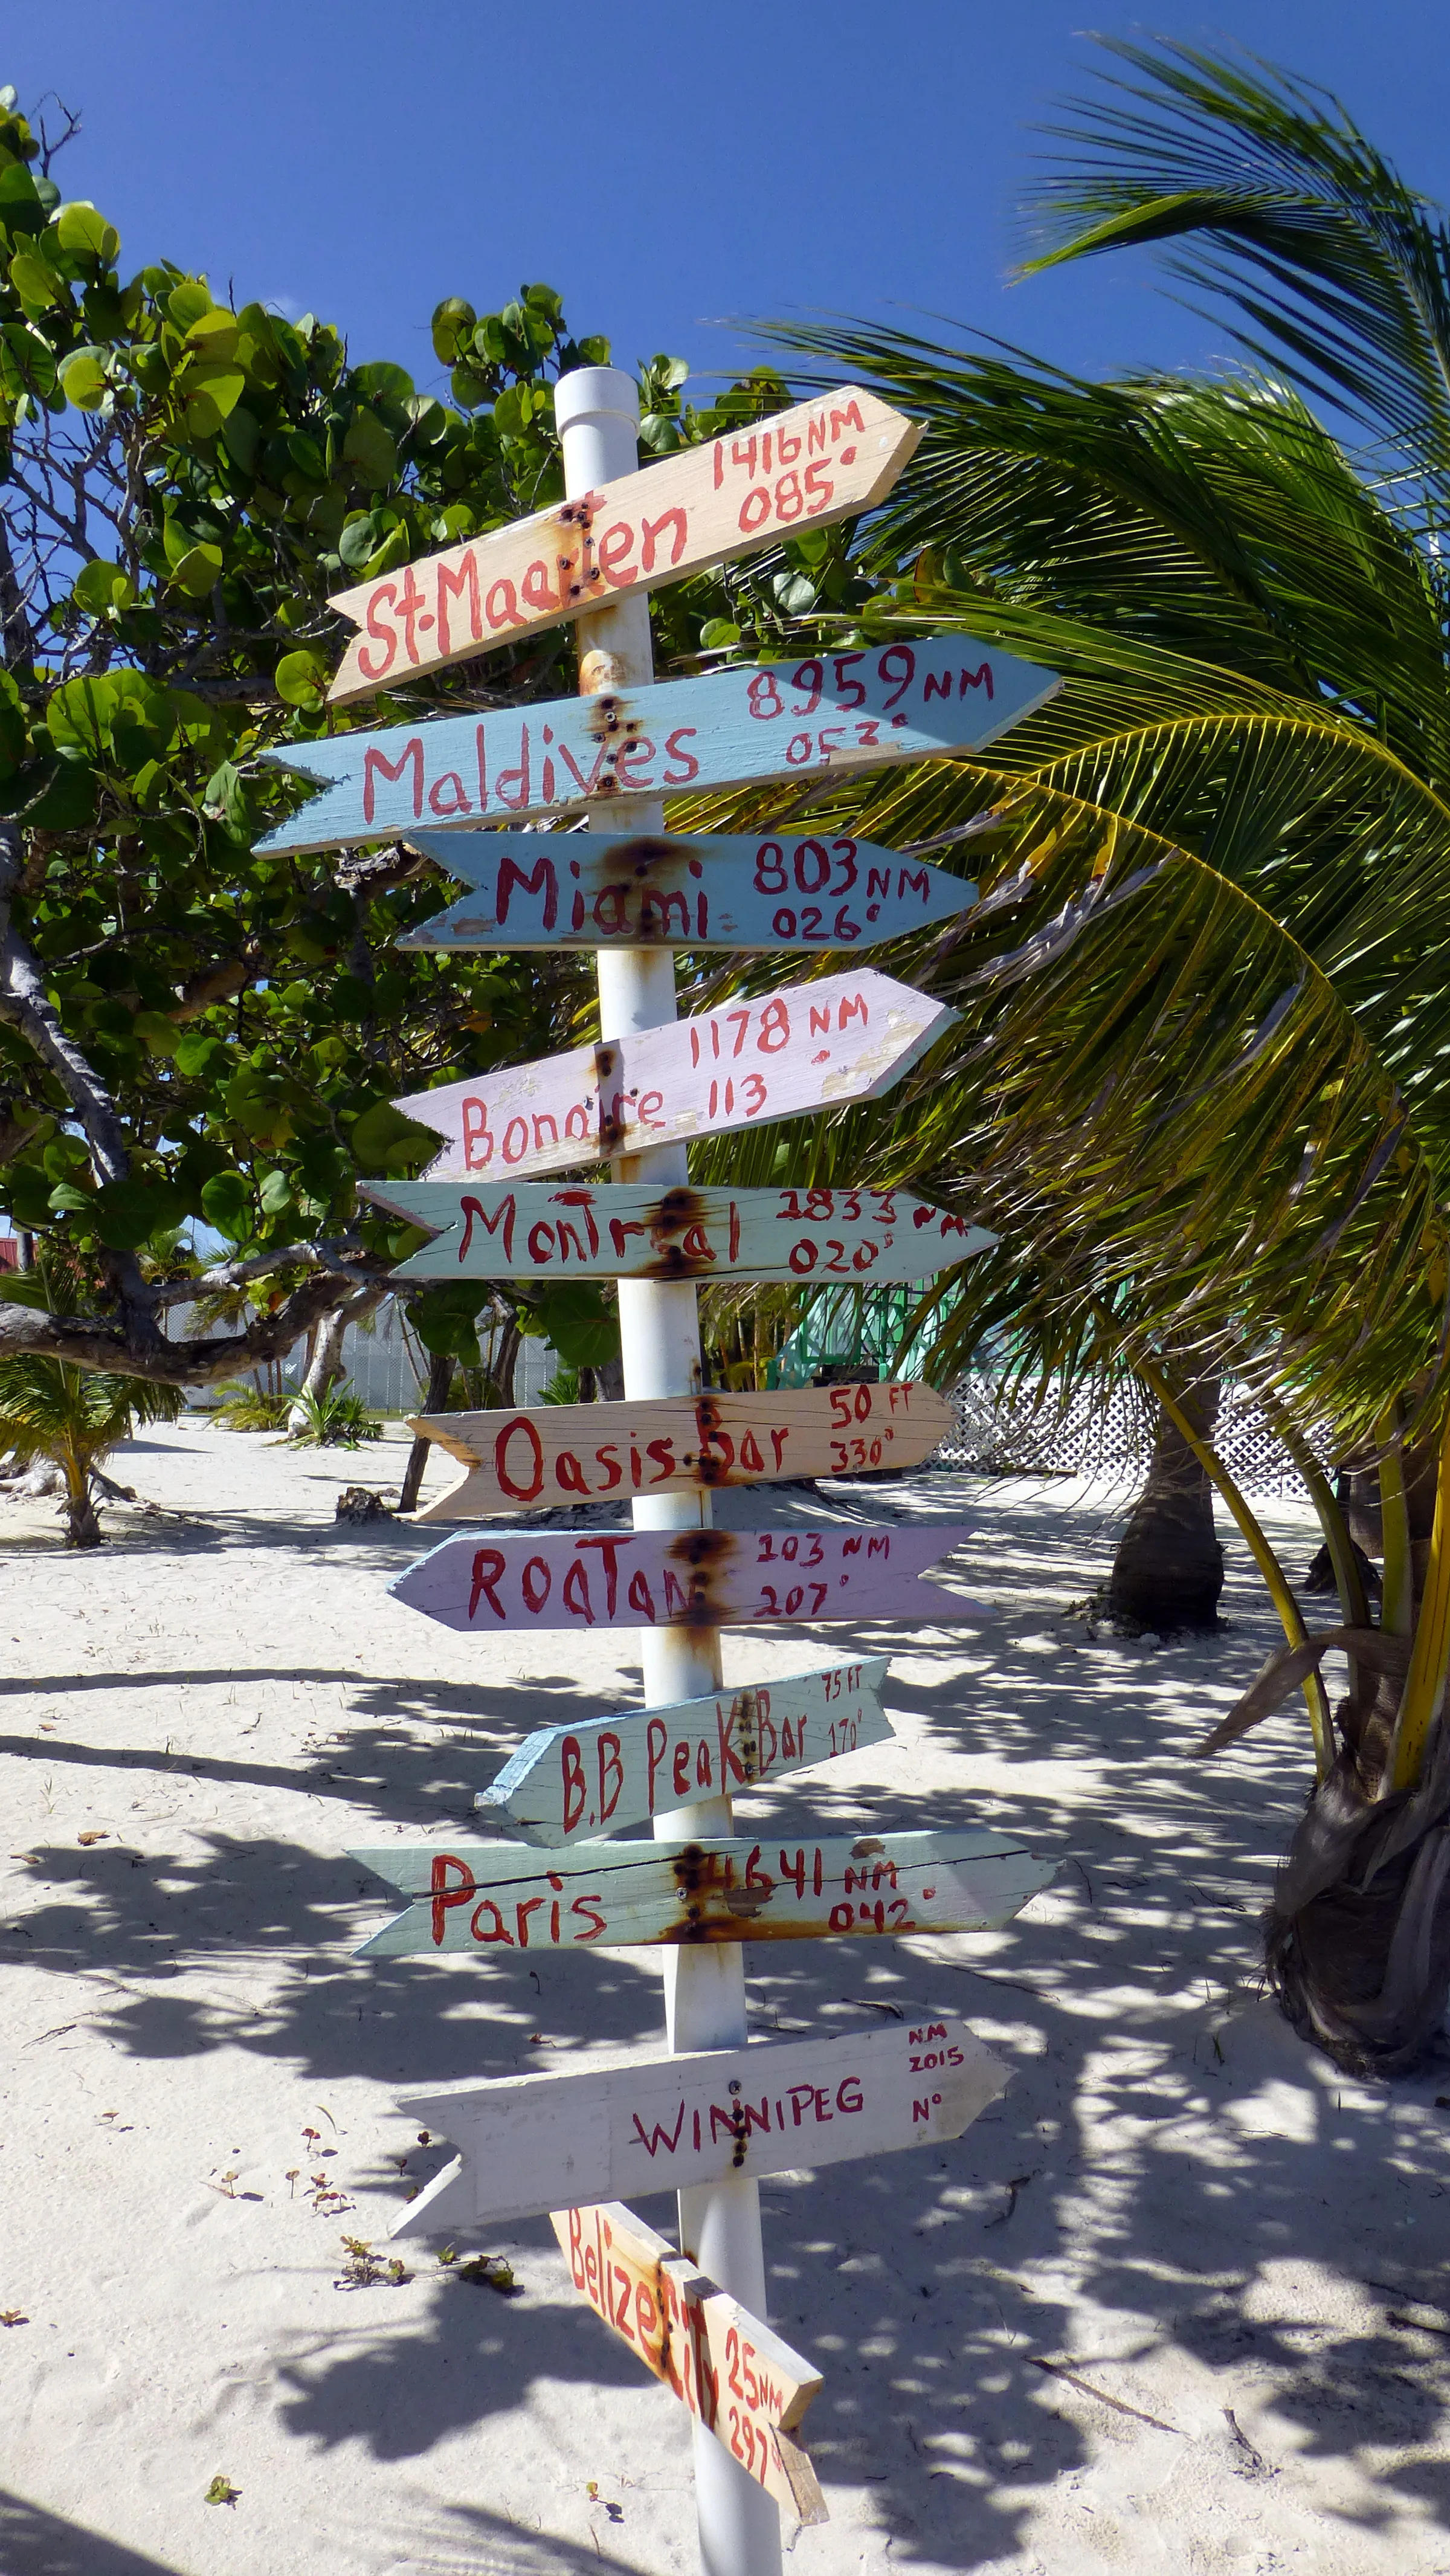 St. Maarten 1416 NM
085°
Maldives 8959 NM
053°
Miami 803 NM
026°
1178 NM
Bonaire 113°
Montreal 1833 NM
020°
Oasis Bar 50 FT
330°
Roatan 103 NM
207°
B.B Peak Bar 75 FT
170°
Paris 4641 NM
042°
NM
WINNIPEG 2015
N°
Belize City 25 NM
297°